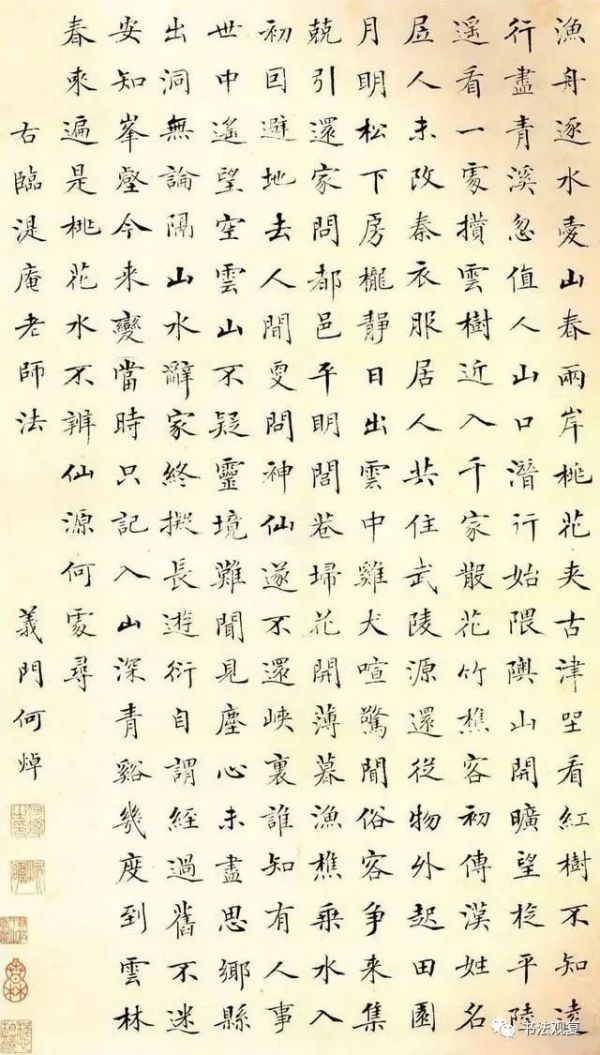 漁舟逐水愛山春兩岸桃花夾古津坐看紅樹不知遠
行盡青溪忽值人山口潛行始隈隩山開曠望旋平陸
遥看一處攢雲樹近入千家散花竹樵客初傳漢姓名
居人未改秦衣服居人共住武陵源還從物外起田園
月明松下房櫳靜日出雲中雞犬喧驚聞俗客争来集
競引還家問都邑平明閭巷埽花開薄暮漁樵乗水入
初回避地去人間更問神仙遂不還峽裏誰知有人事
世中遙望空雲山不疑靈境難聞見塵心未盡思鄉縣
出洞無論隔山水辭家終擬長遊衍自謂經過舊不迷
安知峯壑今来變當時只記入山深青谿幾度到雲林
春來遍是桃花水不辨仙源何處尋
右臨湜庵老師法 義門何焯
书法观复